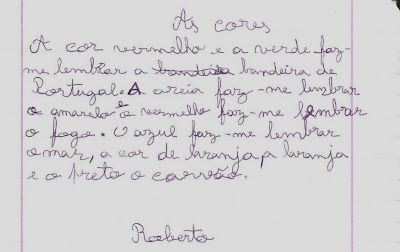 As cores
A cor vermelho e a verde faz-
me lembrar a bandeira bandeira de
Portugal. A areia faz-me lembrar
o amarelo e o vermelho faz-me lembrar
o fogo. O azul faz-me lembrar
o mar, a cor de laranja, a laranja
e o preto o carvão.
Roberto